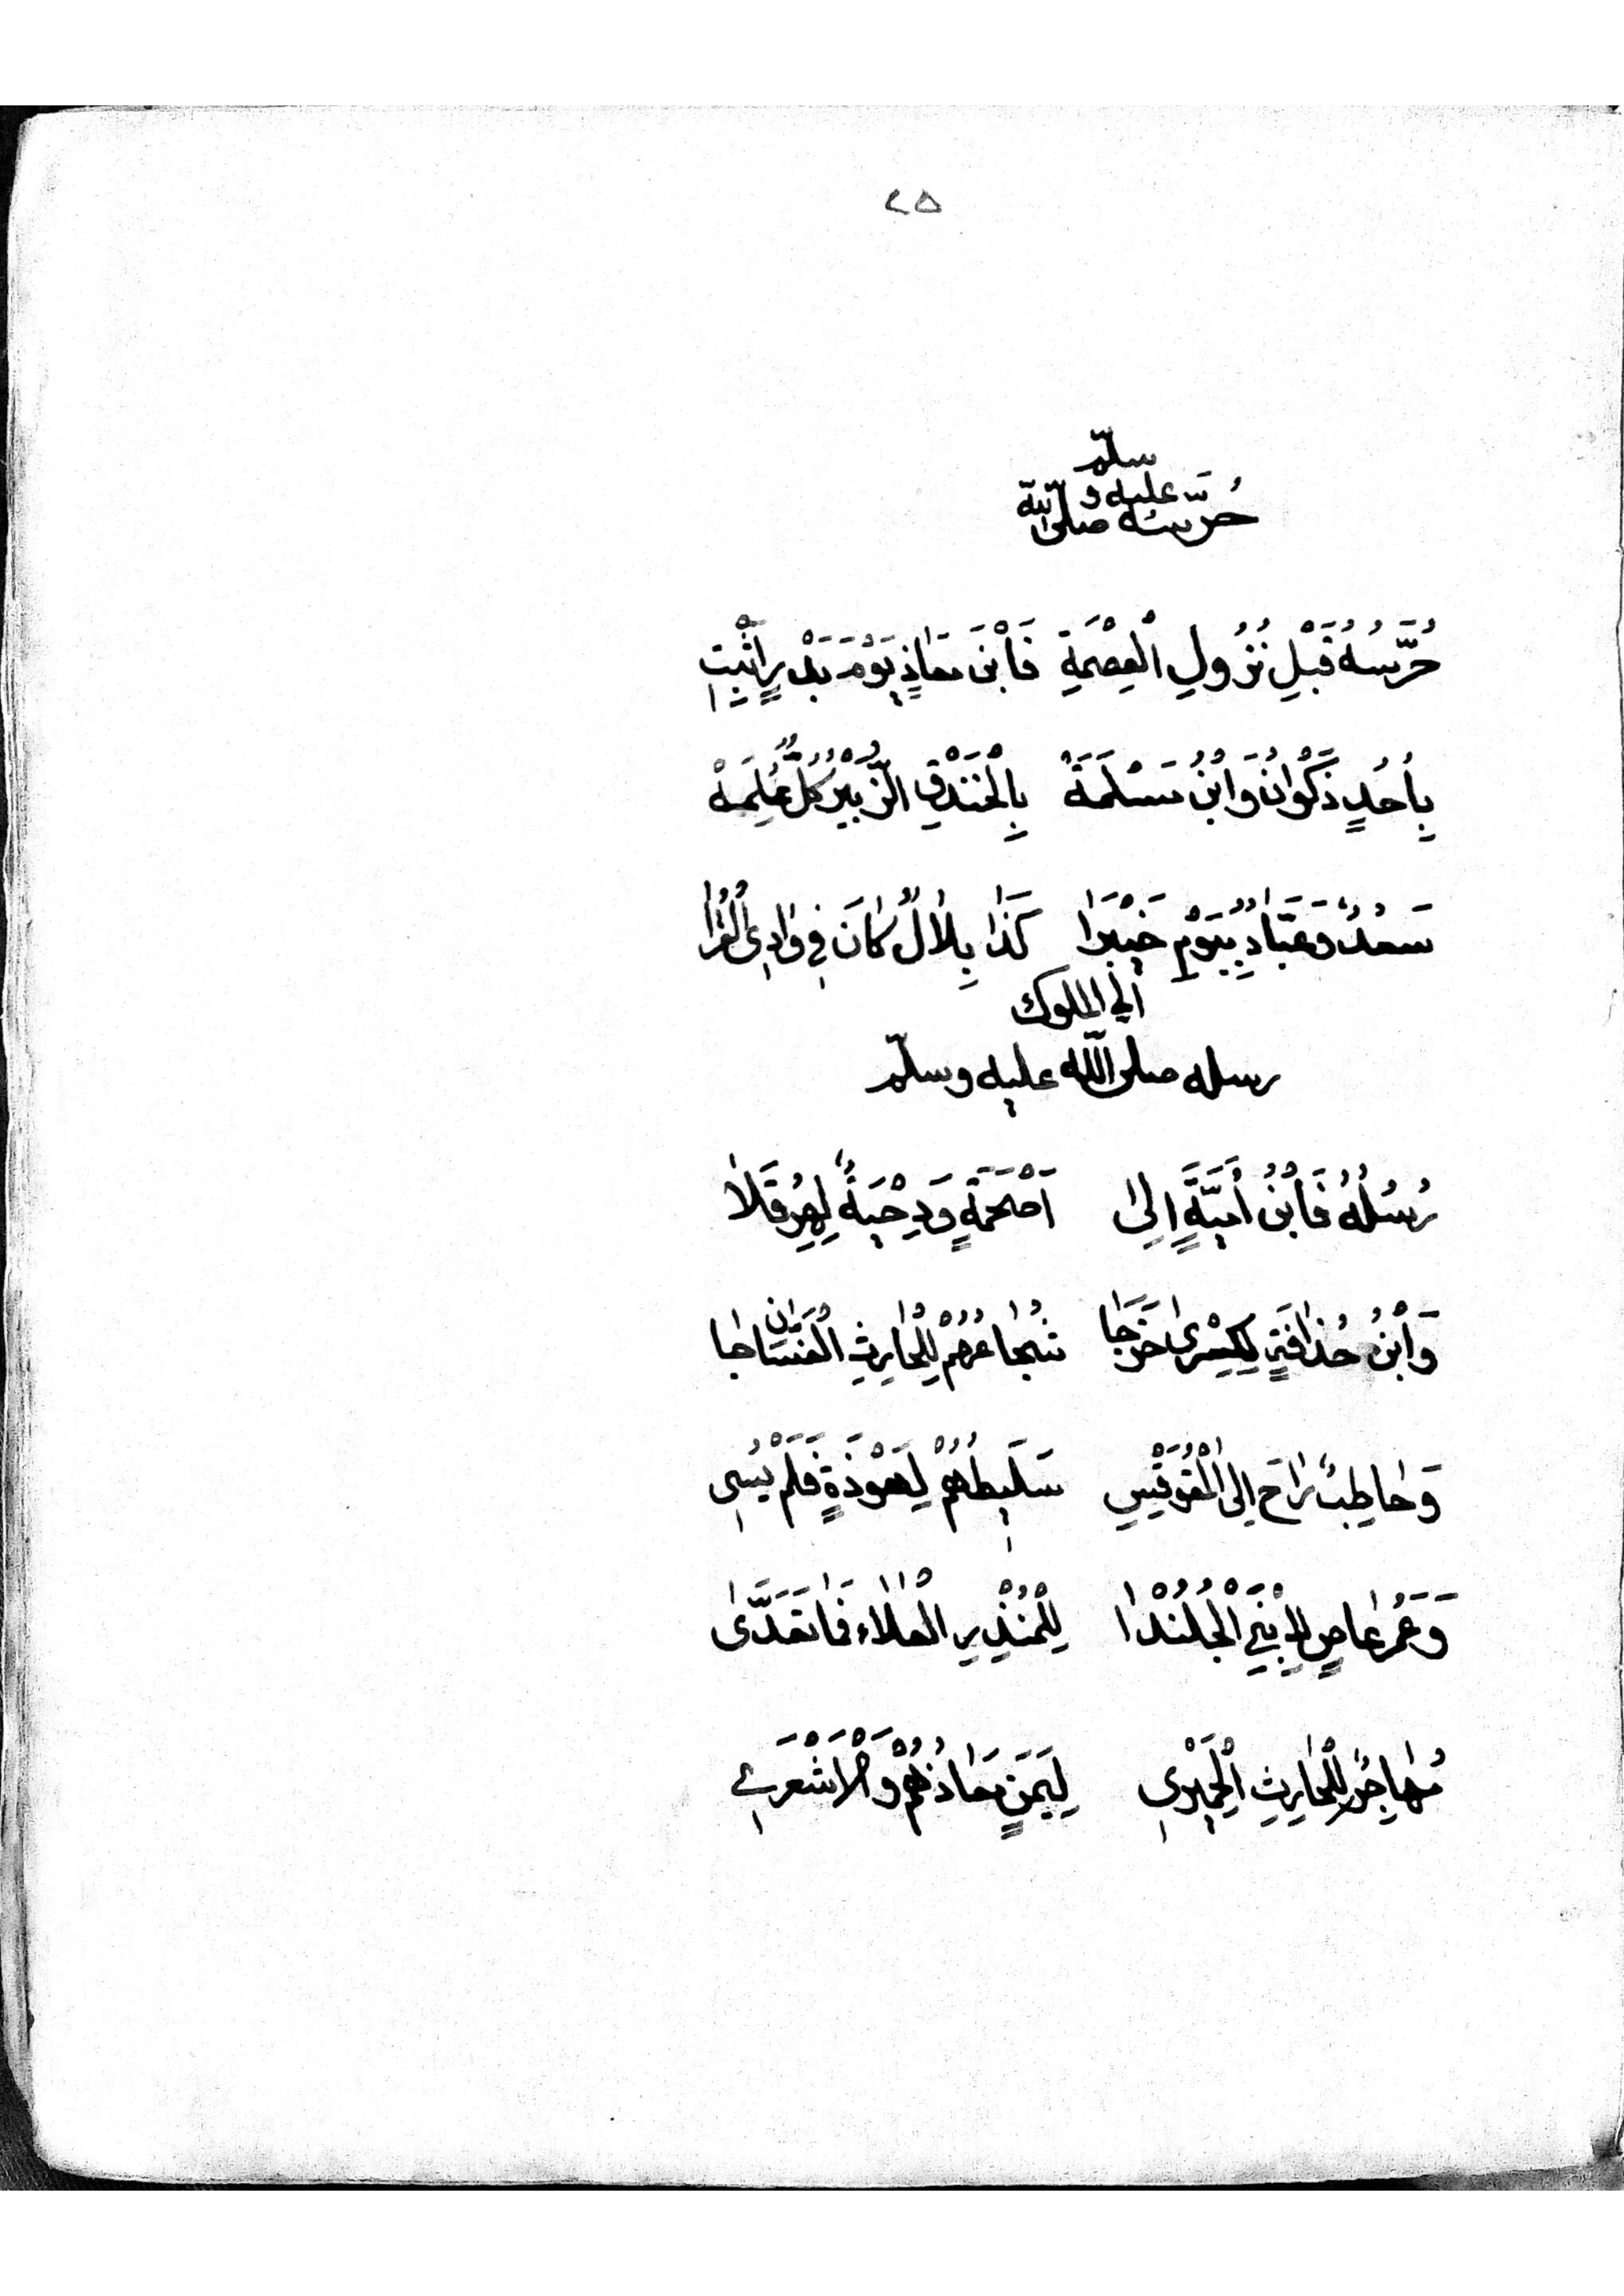 ٢٥
سلّم
عليه و
حُرَّسُه صلى اللّٰه
حُرَّسُهُ قَبْلِ نُزُولِ الْعِصْمَةِ فَأبْنَ مَعَاذٍ يَوْمَ بَدْرٍ اثْبِتِ
بِأُحُدٍ ذَكْوَانُ وَابْنُ مَسْلَمَةً بِالْخَنْدَقِ الزُّبَيْرُ كُلٌّ عُلِمَهْ
سَعْدٌ وَعَبَّادٌ بِيَوْمِ خَيْبَرَا كَذَا بِلَالٌ كَانَ فِي وَادِي الْقُرَا
الي الملوك
رسله صلى اللّٰه عليه وسلّم
رُسُلُهُ فَأبْنُ أُمَيَّةٍ إِلىٰ أَصْحَمَةٍ وَدِحْيَةٌ لِهِرَقَلَا
وَأبْنُ حُذَافَةٍ لِكِسْرىٰ خَرَجَا شُجَاعُهُمْ لِلْحَارِثِ الْغَسَّان جَا
وَحَاطِبٌ رَاحَ اِلىَ الْمُقَوْقِسِ سَلِيطُهُمْ لِهَوْذَةٍ فَلَمْ يُسِي
وَعَمْرُ عَاصٍ لِإبْنَيِ الْجُلُنْدَا لِلْمُنْذِرِ الْعَلَاء فَمَا تَعَدَّىٰ
مُهَاجِرٌ لِلْحَارِثِ الْحِمْيَرِي لِيَمَنٍ مَعَاذُهُمْ وَالْاَشْعَرِي